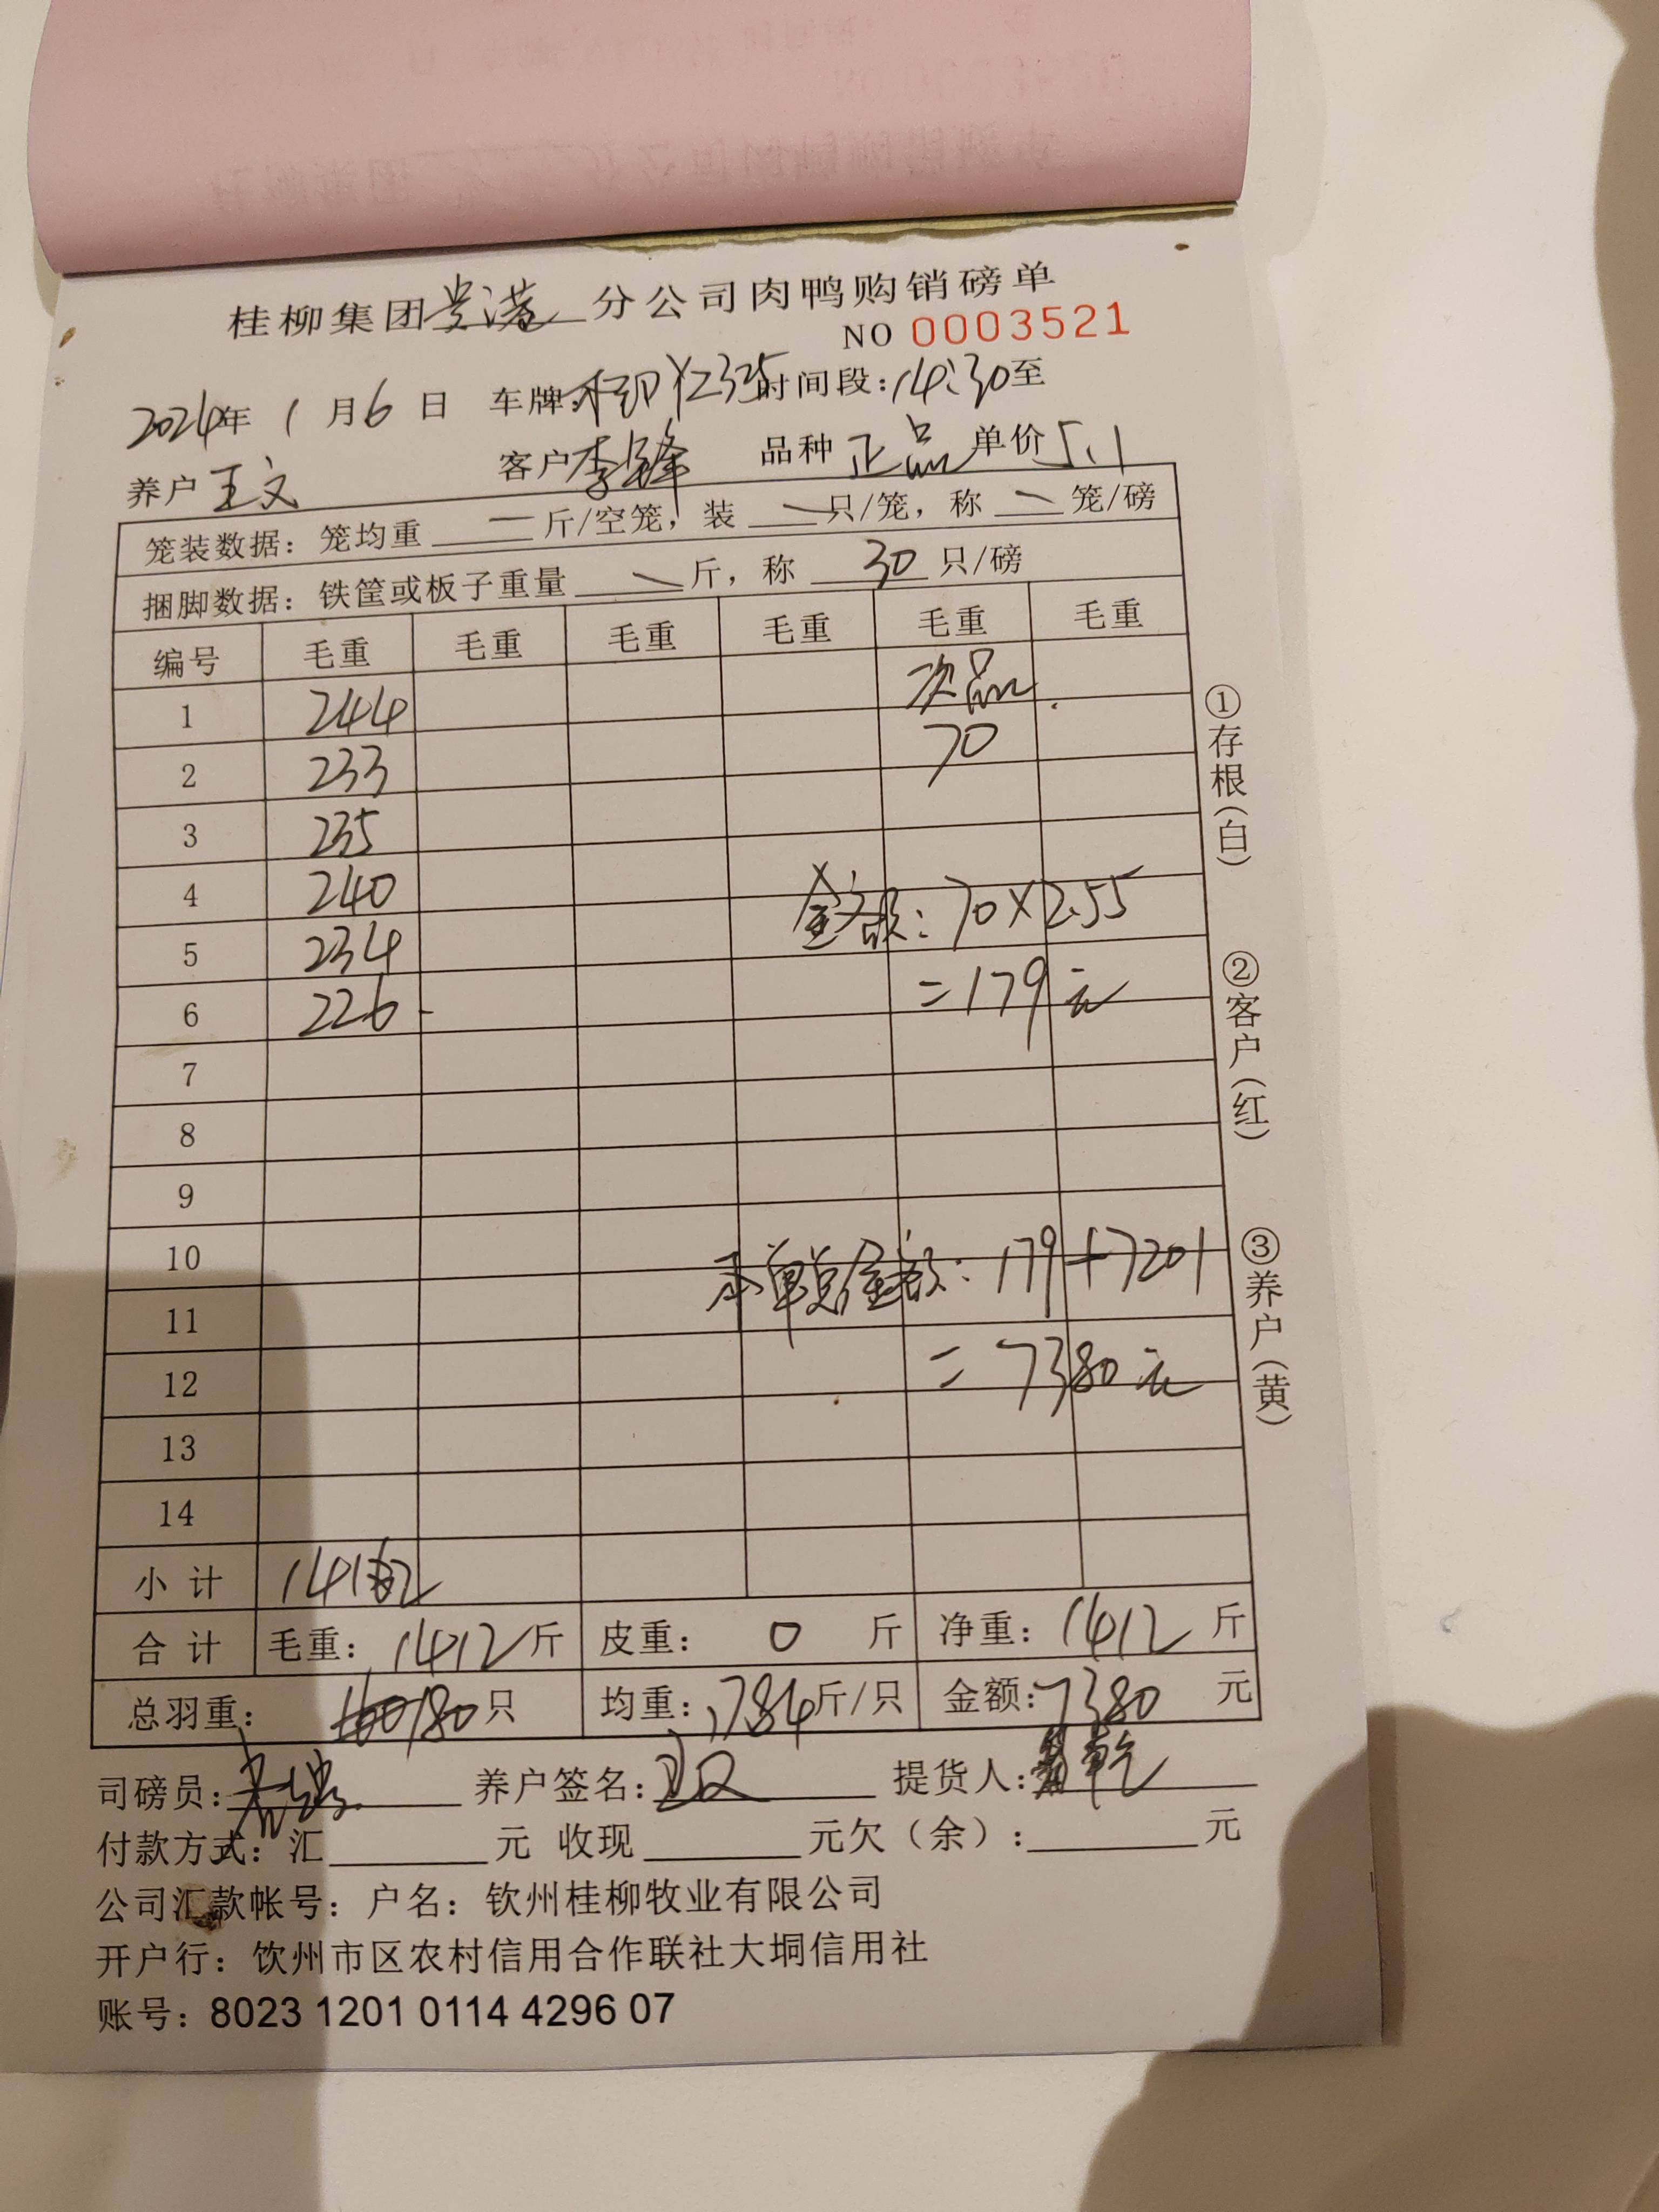 桂柳集团贵港分公司肉鸭购销磅单
NO 0003521
2024年1月6日 车牌: 时间段:14:30至
养户王文 客户李锋 品种正品 单价5.1
笼装数据:笼均重 — 斤/空笼,装 — 只/笼,称 — 笼/磅
捆脚数据:铁筐或板子重量 — 斤,称 30 只/磅
编号 毛重 毛重 毛重 毛重 毛重 毛重
1 244 次品
2 233 70
3 235
4 240 金额:70×2.55
5 234
6 226 =179元
7
8
9
10 本单总金额:179+7201
11
12 =7380元
13
14
小计
合计 毛重:1412斤 皮重:0斤 净重:1412斤
总羽重:180只 均重:7.84斤/只 金额:7380元
司磅员: 养户签名:王文 提货人:
付款方式:汇 元 收现 元欠(余): 元
公司汇款帐号:户名:钦州桂柳牧业有限公司
开户行:饮州市区农村信用合作联社大垌信用社
账号:8023 1201 0114 4296 07
①存根(白)
②客户(红)
③养户(黄)